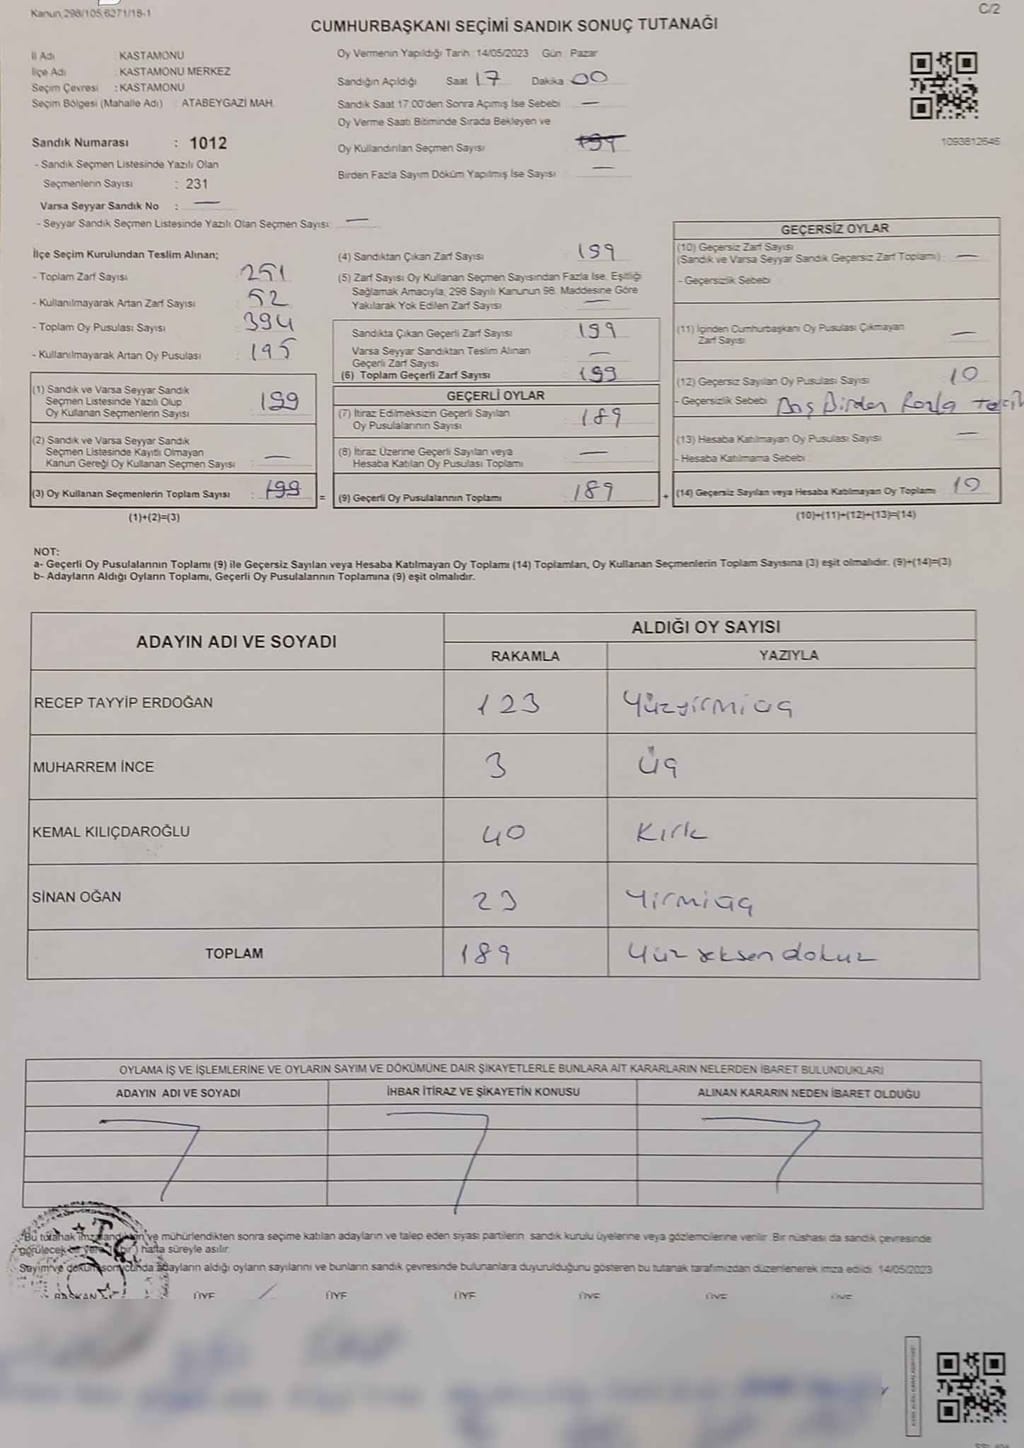 Kanun, 298/105,6271/18-1
C/2
CUMHURBAŞKANI SEÇİMİ SANDIK SONUÇ TUTANAĞI
İl Adı : KASTAMONU
İlçe Adı : KASTAMONU MERKEZ
Seçim Çevresi : KASTAMONU
Seçim Bölgesi (Mahalle Adı) : ATABEYGAZİ MAH.
Oy Vermenin Yapıldığı Tarih : 14/05/2023 Gün : Pazar
Sandığın Açıldığı Saat 17 Dakika 00
Sandık Saat 17.00'den Sonra Açımış İse Sebebi —
Oy Verme Saati Bitiminde Sırada Bekleyen ve
Oy Kullandırılan Seçmen Sayısı 199
Birden Fazla Sayım Döküm Yapılmış İse Sayısı —
1093812646
Sandık Numarası : 1012
- Sandık Seçmen Listesinde Yazılı Olan
Seçmenlerin Sayısı : 231
Varsa Seyyar Sandık No : —
- Seyyar Sandık Seçmen Listesinde Yazılı Olan Seçmen Sayısı: —
İlçe Seçim Kurulundan Teslim Alınan;
- Toplam Zarf Sayısı : 251
- Kullanılmayarak Artan Zarf Sayısı : 52
- Toplam Oy Pusulası Sayısı : 394
- Kullanılmayarak Artan Oy Pusulası : 195
(1) Sandık ve Varsa Seyyar Sandık
Seçmen Listesinde Yazılı Olup
Oy Kullanan Seçmenlerin Sayısı : 199
(2) Sandık ve Varsa Seyyar Sandık
Seçmen Listesinde Kayıtlı Olmayan
Kanun Gereği Oy Kullanan Seçmen Sayısı : —
(3) Oy Kullanan Seçmenlerin Toplam Sayısı : 199 =
(1)+(2)=(3)
(4) Sandıktan Çıkan Zarf Sayısı : 199
(5) Zarf Sayısı Oy Kullanan Seçmen Sayısından Fazla İse, Eşitliği
Sağlamak Amacıyla, 298 Sayılı Kanunun 98. Maddesine Göre
Yakılarak Yok Edilen Zarf Sayısı : —
Sandıkta Çıkan Geçerli Zarf Sayısı : 199
Varsa Seyyar Sandıktan Teslim Alınan
Geçerli Zarf Sayısı : —
(6) Toplam Geçerli Zarf Sayısı : 199
GEÇERLİ OYLAR
(7) İtiraz Edilmeksizin Geçerli Sayılan
Oy Pusulalarının Sayısı : 189
(8) İtiraz Üzerine Geçerli Sayılan veya
Hesaba Katılan Oy Pusulası Toplamı : —
(9) Geçerli Oy Pusulalarının Toplamı : 189 +
GEÇERSİZ OYLAR
(10) Geçersiz Zarf Sayısı
(Sandık ve Varsa Seyyar Sandık Geçersiz Zarf Toplamı) : —
- Geçersizlik Sebebi :
(11) İçinden Cumhurbaşkanı Oy Pusulası Çıkmayan
Zarf Sayısı : —
(12) Geçersiz Sayılan Oy Pusulası Sayısı : 10
- Geçersizlik Sebebi : Boş Birden Fazla
(13) Hesaba Katılmayan Oy Pusulası Sayısı : —
- Hesaba Katılmama Sebebi :
(14) Geçersiz Sayılan veya Hesaba Katılmayan Oy Toplamı : 10
(10)+(11)+(12)+(13)=(14)
NOT:
a- Geçerli Oy Pusulalarının Toplamı (9) ile Geçersiz Sayılan veya Hesaba Katılmayan Oy Toplamı (14) Toplamları, Oy Kullanan Seçmenlerin Toplam Sayısına (3) eşit olmalıdır. (9)+(14)=(3)
b- Adayların Aldığı Oyların Toplamı, Geçerli Oy Pusulalarının Toplamına (9) eşit olmalıdır.
ADAYIN ADI VE SOYADI
ALDIĞI OY SAYISI
RAKAMLA YAZIYLA
RECEP TAYYİP ERDOĞAN 123 Yüzyirmiüç
MUHARREM İNCE 3 Üç
KEMAL KILIÇDAROĞLU 40 Kırk
SİNAN OĞAN 23 Yirmiüç
TOPLAM 189 Yüz seksen dokuz
OYLAMA İŞ VE İŞLEMLERİNE VE OYLARIN SAYIM VE DÖKÜMÜNE DAİR ŞİKAYETLERLE BUNLARA AİT KARARLARIN NELERDEN İBARET BULUNDUKLARI
ADAYIN ADI VE SOYADI İHBAR İTİRAZ VE ŞİKAYETİN KONUSU ALINAN KARARIN NEDEN İBARET OLDUĞU
Bu tutanak imzalandıktan ve mühürlendikten sonra seçime katılan adayların ve talep eden siyasi partilerin sandık kurulu üyelerine veya gözlemcilerine verilir. Bir nüshası da sandık çevresinde
görülecek bir yere (bir) hafta süreyle asılır.
Sayım ve döküm sonucunda adayların aldığı oyların sayılarını ve bunların sandık çevresinde bulunanlara duyurulduğunu gösteren bu tutanak tarafımızdan düzenlenerek imza edildi. 14/05/2023
BAŞKAN ÜYE ÜYE ÜYE ÜYE ÜYE ÜYE